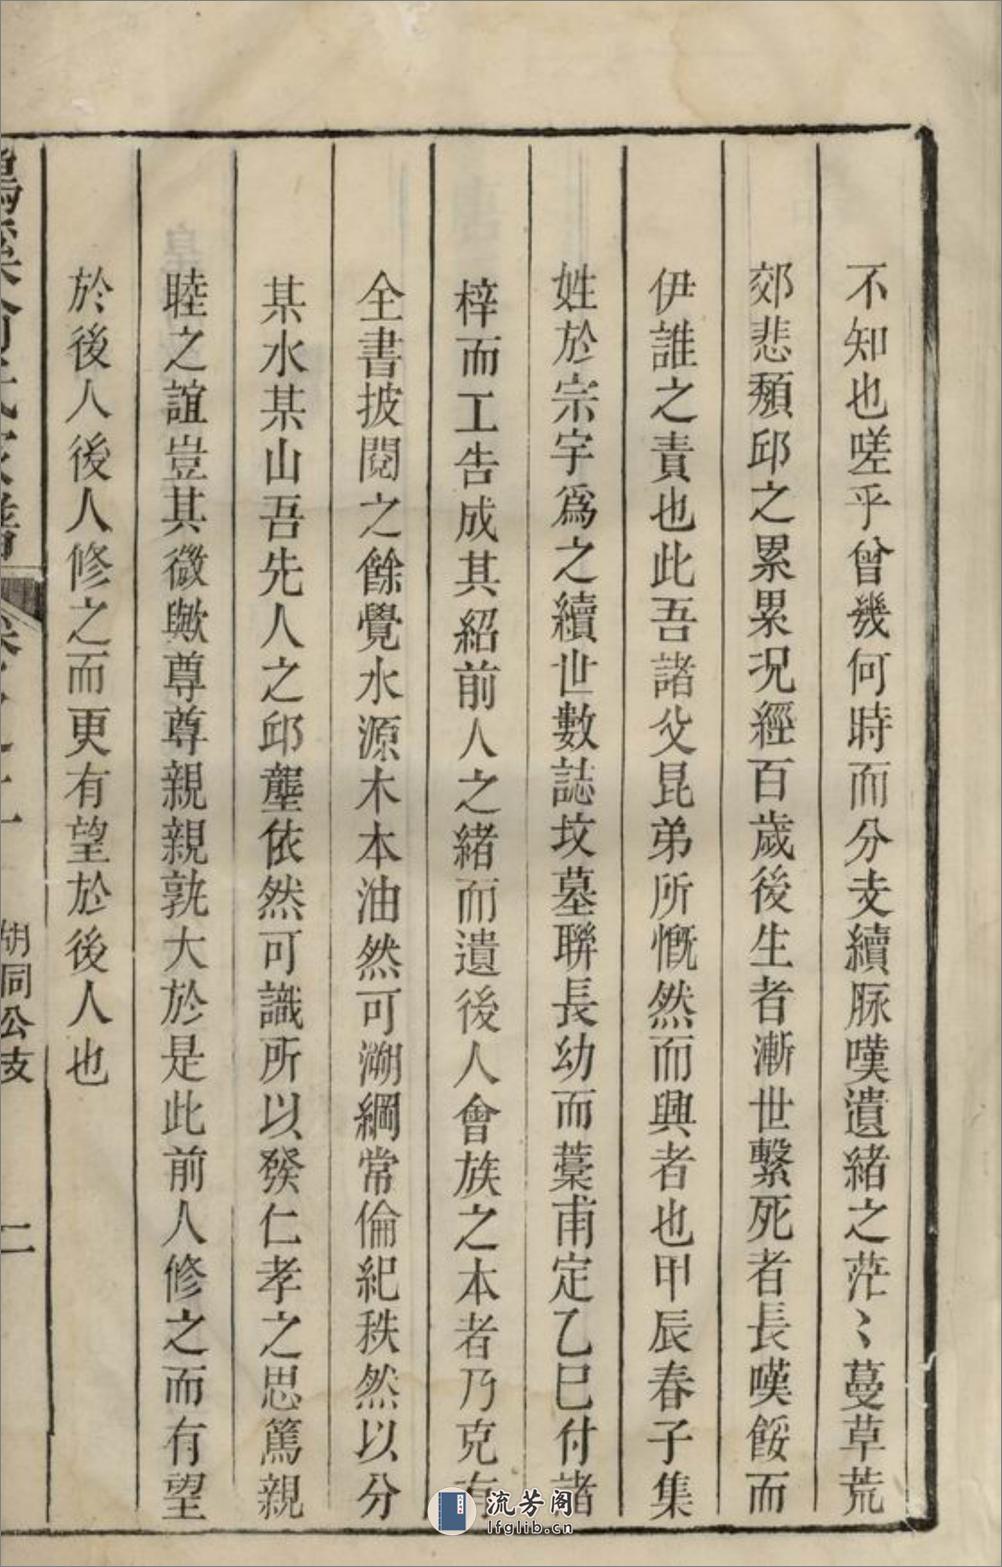 不知也嗟乎曾幾何時而分支續脉嘆遺緒之茫〻蔓草荒
郊悲頽邱之累累況經百歲後生者漸世繫死者長嘆餒而
伊誰之責也此吾諸父昆弟所慨然而興者也甲辰春子集
姓於宗宇爲之續世數誌坟墓聯長幼而藁甫定乙巳付諸
梓而工告成其紹前人之緒而遺後人會族之本者乃克有
全書披閱之餘覺水源木本油然可溯綱常倫紀秩然以分
某水某山吾先人之邱壟依然可識所以發仁孝之思篤親
睦之誼豈其微歟尊尊親親孰大於是此前人修之而有望
於後人後人修之而更有望於後人也
氏家譜
卷之十
胡同公支
二
流芳阁
lfglib.cn